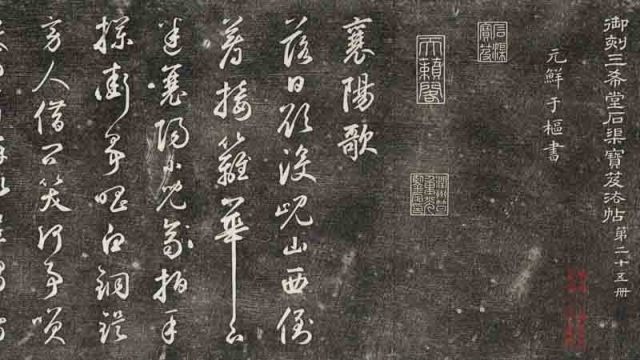 御刻三希堂石渠寶笈法帖 第二十五冊
元鮮于樞書
石渠寶笈
天籟閣
襄陽歌
落日欲没峴山西倒
著接籬華下
迷襄陽小兒齊拍手
攔街爭唱白銅鍉
旁人借問笑何事咲